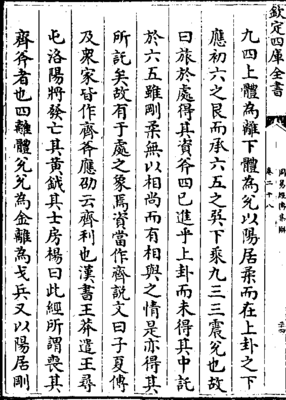 欽定四庫全書
九四上體為離下體為兌以陽居柔而在上卦之下
應初六之艮而承六五之巽下乘九三三震兌也故
曰旅於處得其資斧四已進乎上卦而未得其中託
於六五雖剛柔無以相尚而有相與之情是亦得其
所託矣故有于處之象焉資當作齊説文曰子夏傳
及衆家皆作齊斧應劭云齊利也漢書王莽遣王尋
屯洛陽將發亡其黄鉞其士房楊曰此經所謂喪其
齊斧者也四離體兌兌為金離為戈兵又以陽居剛
卷二十八